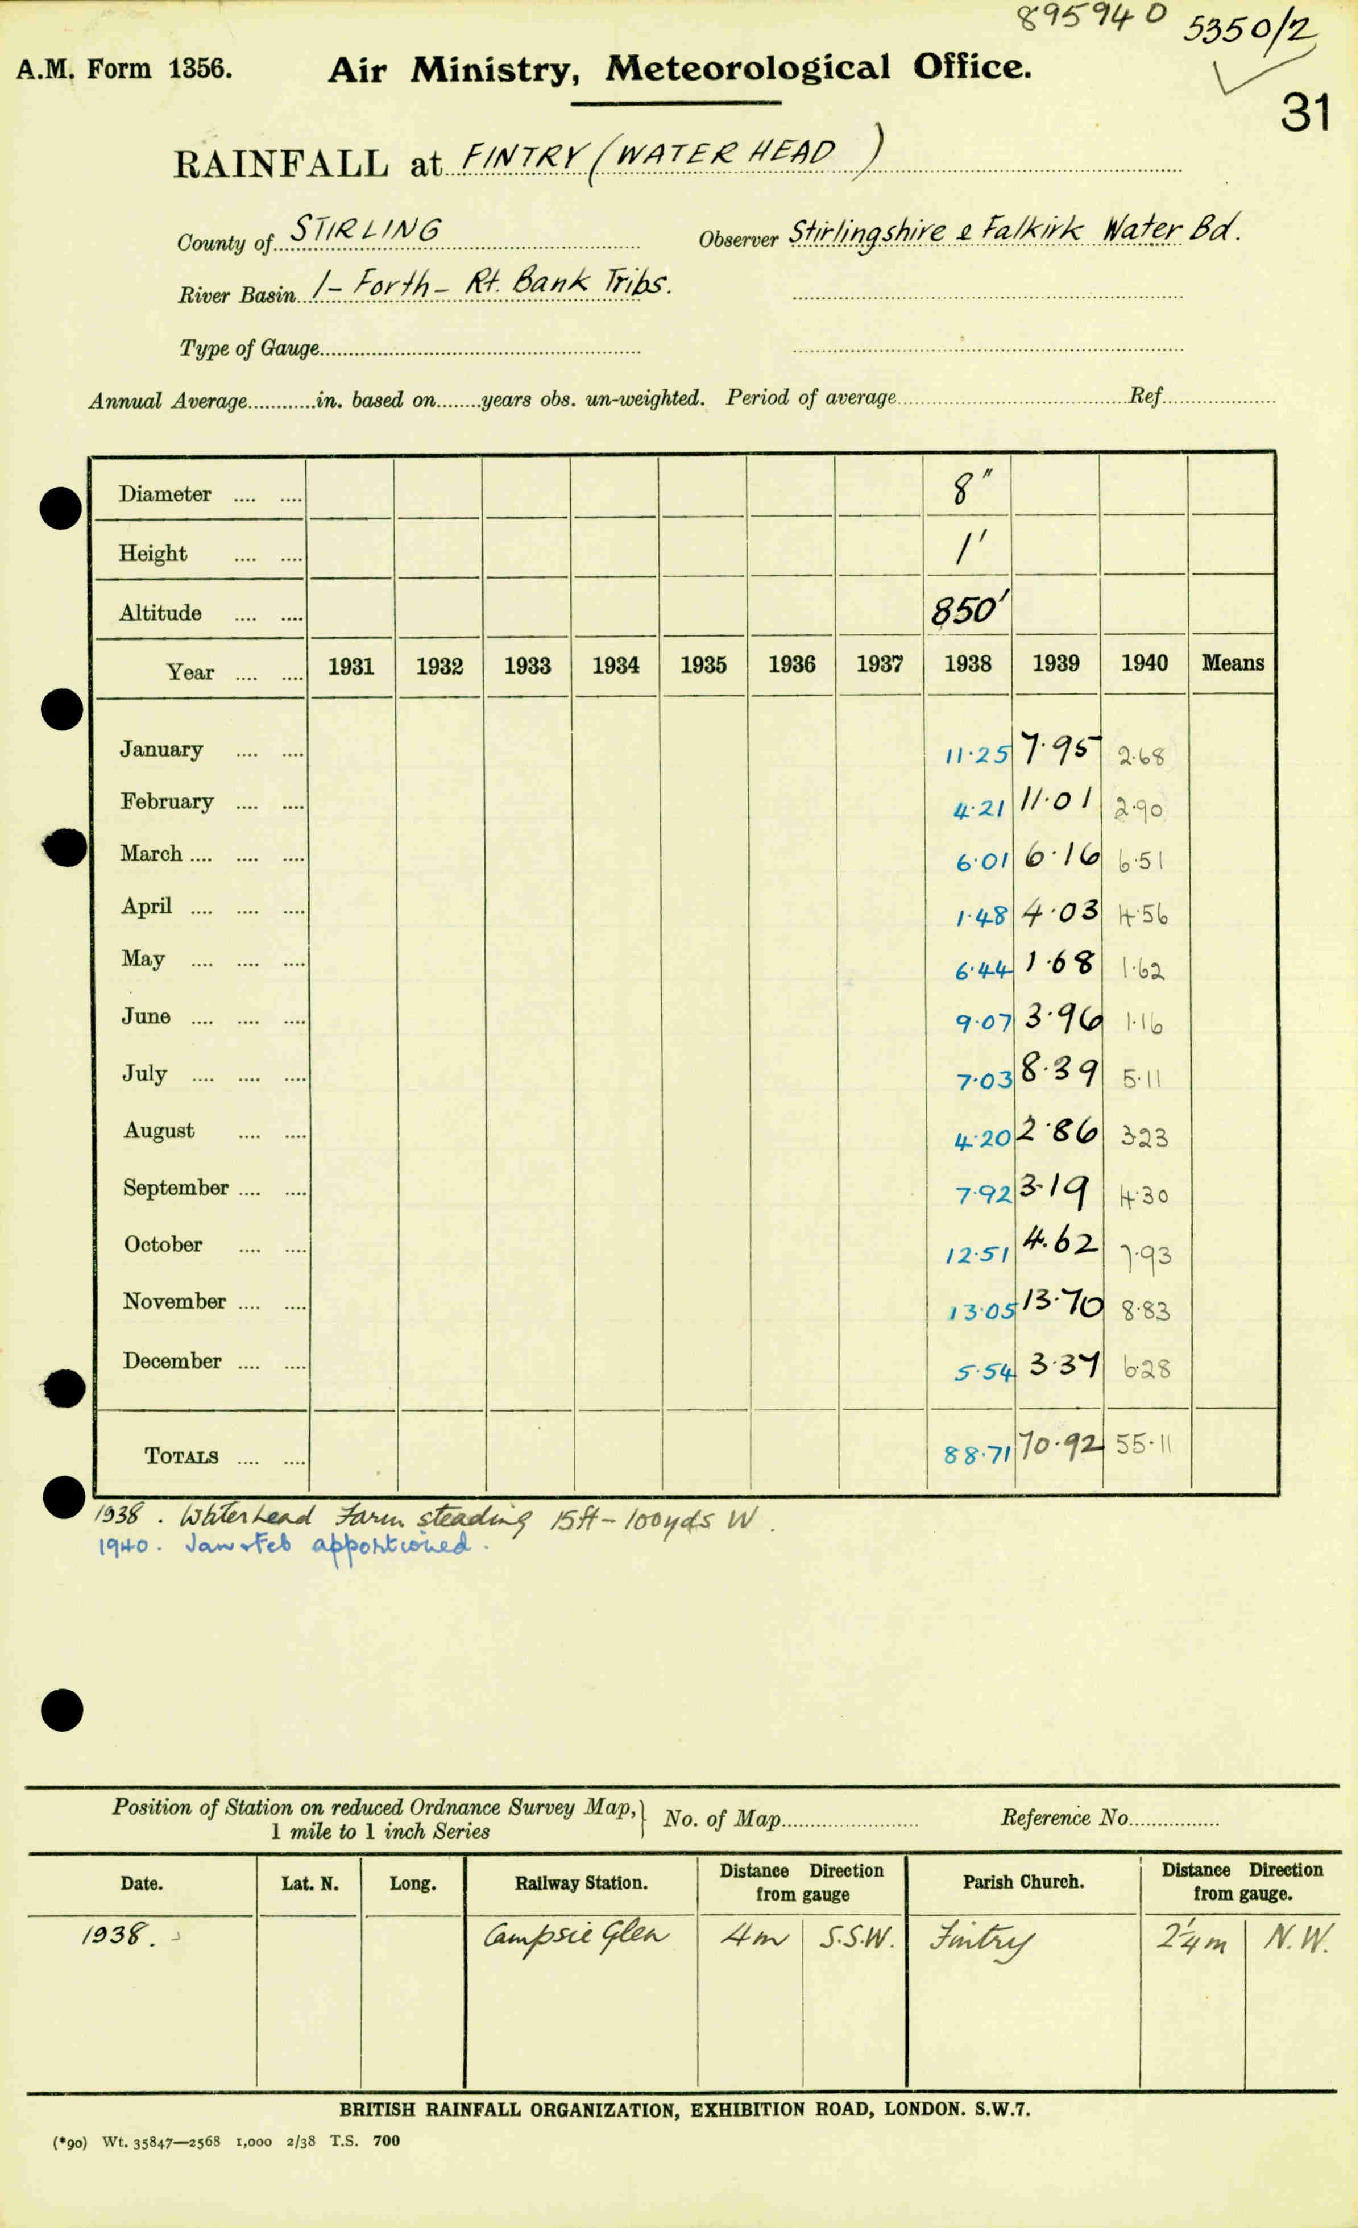 895940 5350/2
A.M. Form 1356. Air Ministry, Meteorological Office.
31
RAINFALL at FINTRY (WATER HEAD )
County of STIRLING Observer Stirlingshire & Falkirk Water Bd.
River Basin 1- Forth- Rt. Bank Tribs.
Type of Gauge
Annual Average in. based on years obs. un-weighted. Period of average Ref
Diameter 8"
Height 1'
Altitude 850'
Year 1931 1932 1933 1934 1935 1936 1937 1938 1939 1940 Means
January 11.25 7.95 2.68
February 4.21 11.01 2.90
March 6.01 6.16 6.51
April 1.48 4.03 4.56
May 6.44 1.68 1.62
June 9.07 3.96 1.16
July 7.03 8.39 5.11
August 4.20 2.86 3.23
September 7.92 3.19 4.30
October 12.51 4.62 7.93
November 13.05 13.70 8.83
December 5.54 3.37 6.28
TOTALS 88.71 70.92 55.11
1938. Waterhead Farm steading 15ft - 100yds W.
1940. Jan & Feb apportioned.
Position of Station on reduced Ordnance Survey Map, 1 mile to 1 inch Series } No. of Map Reference No.
Date. Lat. N. Long. Railway Station. Distance Direction from gauge Parish Church. Distance Direction from gauge.
1938. Campsie Glen 4m S.S.W. Fintry 2¼m N.W.
BRITISH RAINFALL ORGANIZATION, EXHIBITION ROAD, LONDON. S.W.7.
(*90) Wt. 35847—2568 1,000 2/38 T.S. 700